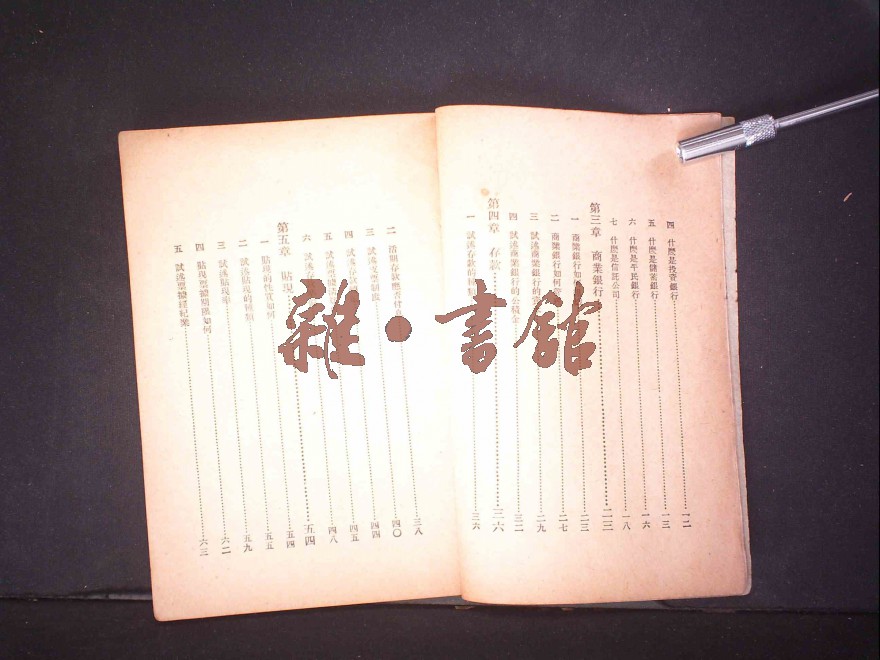 四 什麽是投資銀行……一二
五 什麽是儲蓄銀行……一三
六 什麽是平民銀行……一六
七 什麽是信託公司……一八
第三章 商業銀行……二三
一 商業銀行如何……二三
二 商業銀行如何……二七
三 試述商業銀行的……二九
四 試述商業銀行的公積金……三二
第四章 存款……三六
一 試述存款的種類……三六
二 活期存款應否付……三八
三 試述支票制度……四〇
四 試述存款……四四
五 試述票據……四五
六 試述……四八
第五章 貼現……五四
一 貼現的性質如何……五四
二 試述貼現的種類……五五
三 試述貼現率……五九
四 貼現票據期限如何……六二
五 試述票據經紀業……六三
雜·書館